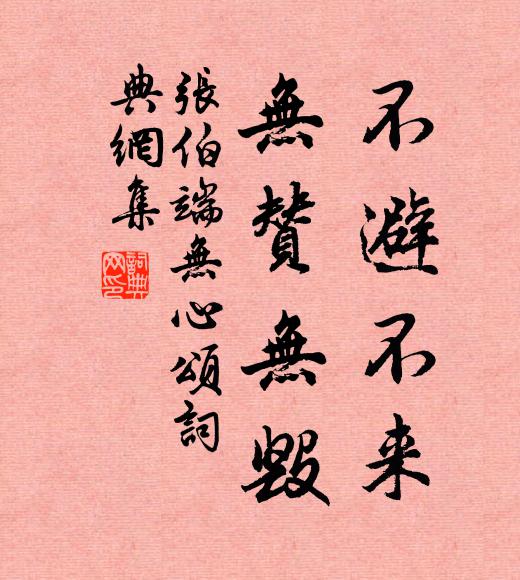 不避不来
無赞無毀
張伯端無心頌詞
典網集
詞典
网印